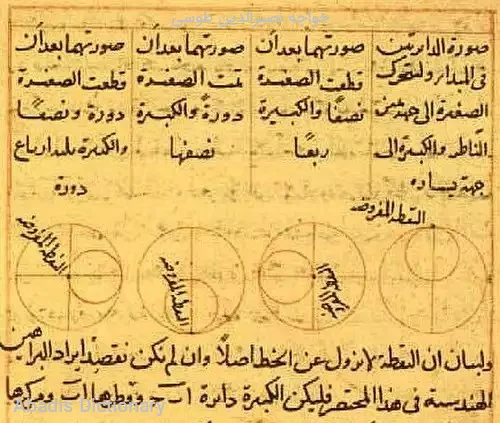 خواجه نصیرالدین طوسی
صورة الدايرتين
فى المبدا ولتتحرك
الصغيرة الى جهة يمين
الناظر والكبيرة الى
جهة يساره
صورتهما بعد أن
قطعت الصغيرة
نصفًا والكبيرة
ربعًا
صورتهما بعد أن
تمت الصغيرة
دورةً والكبيرة
نصفها
صورتهما بعد أن
قطعت الصغيرة
دورة ونصفًا
والكبيرة ثلثة ارباع
دورة
النقطة المفروضة
النقطة المفروضة
النقطة المفروضة
ولبيان ان النقطة لا تزول عن الخط اصلًا وان لم يكن نقصد ايراد البراهين
الهندسية فى هذا المختصر فليكن الكبيرة دايرة ا ب ج وقطرها ا ب ومركزها
Abadis Dictionary